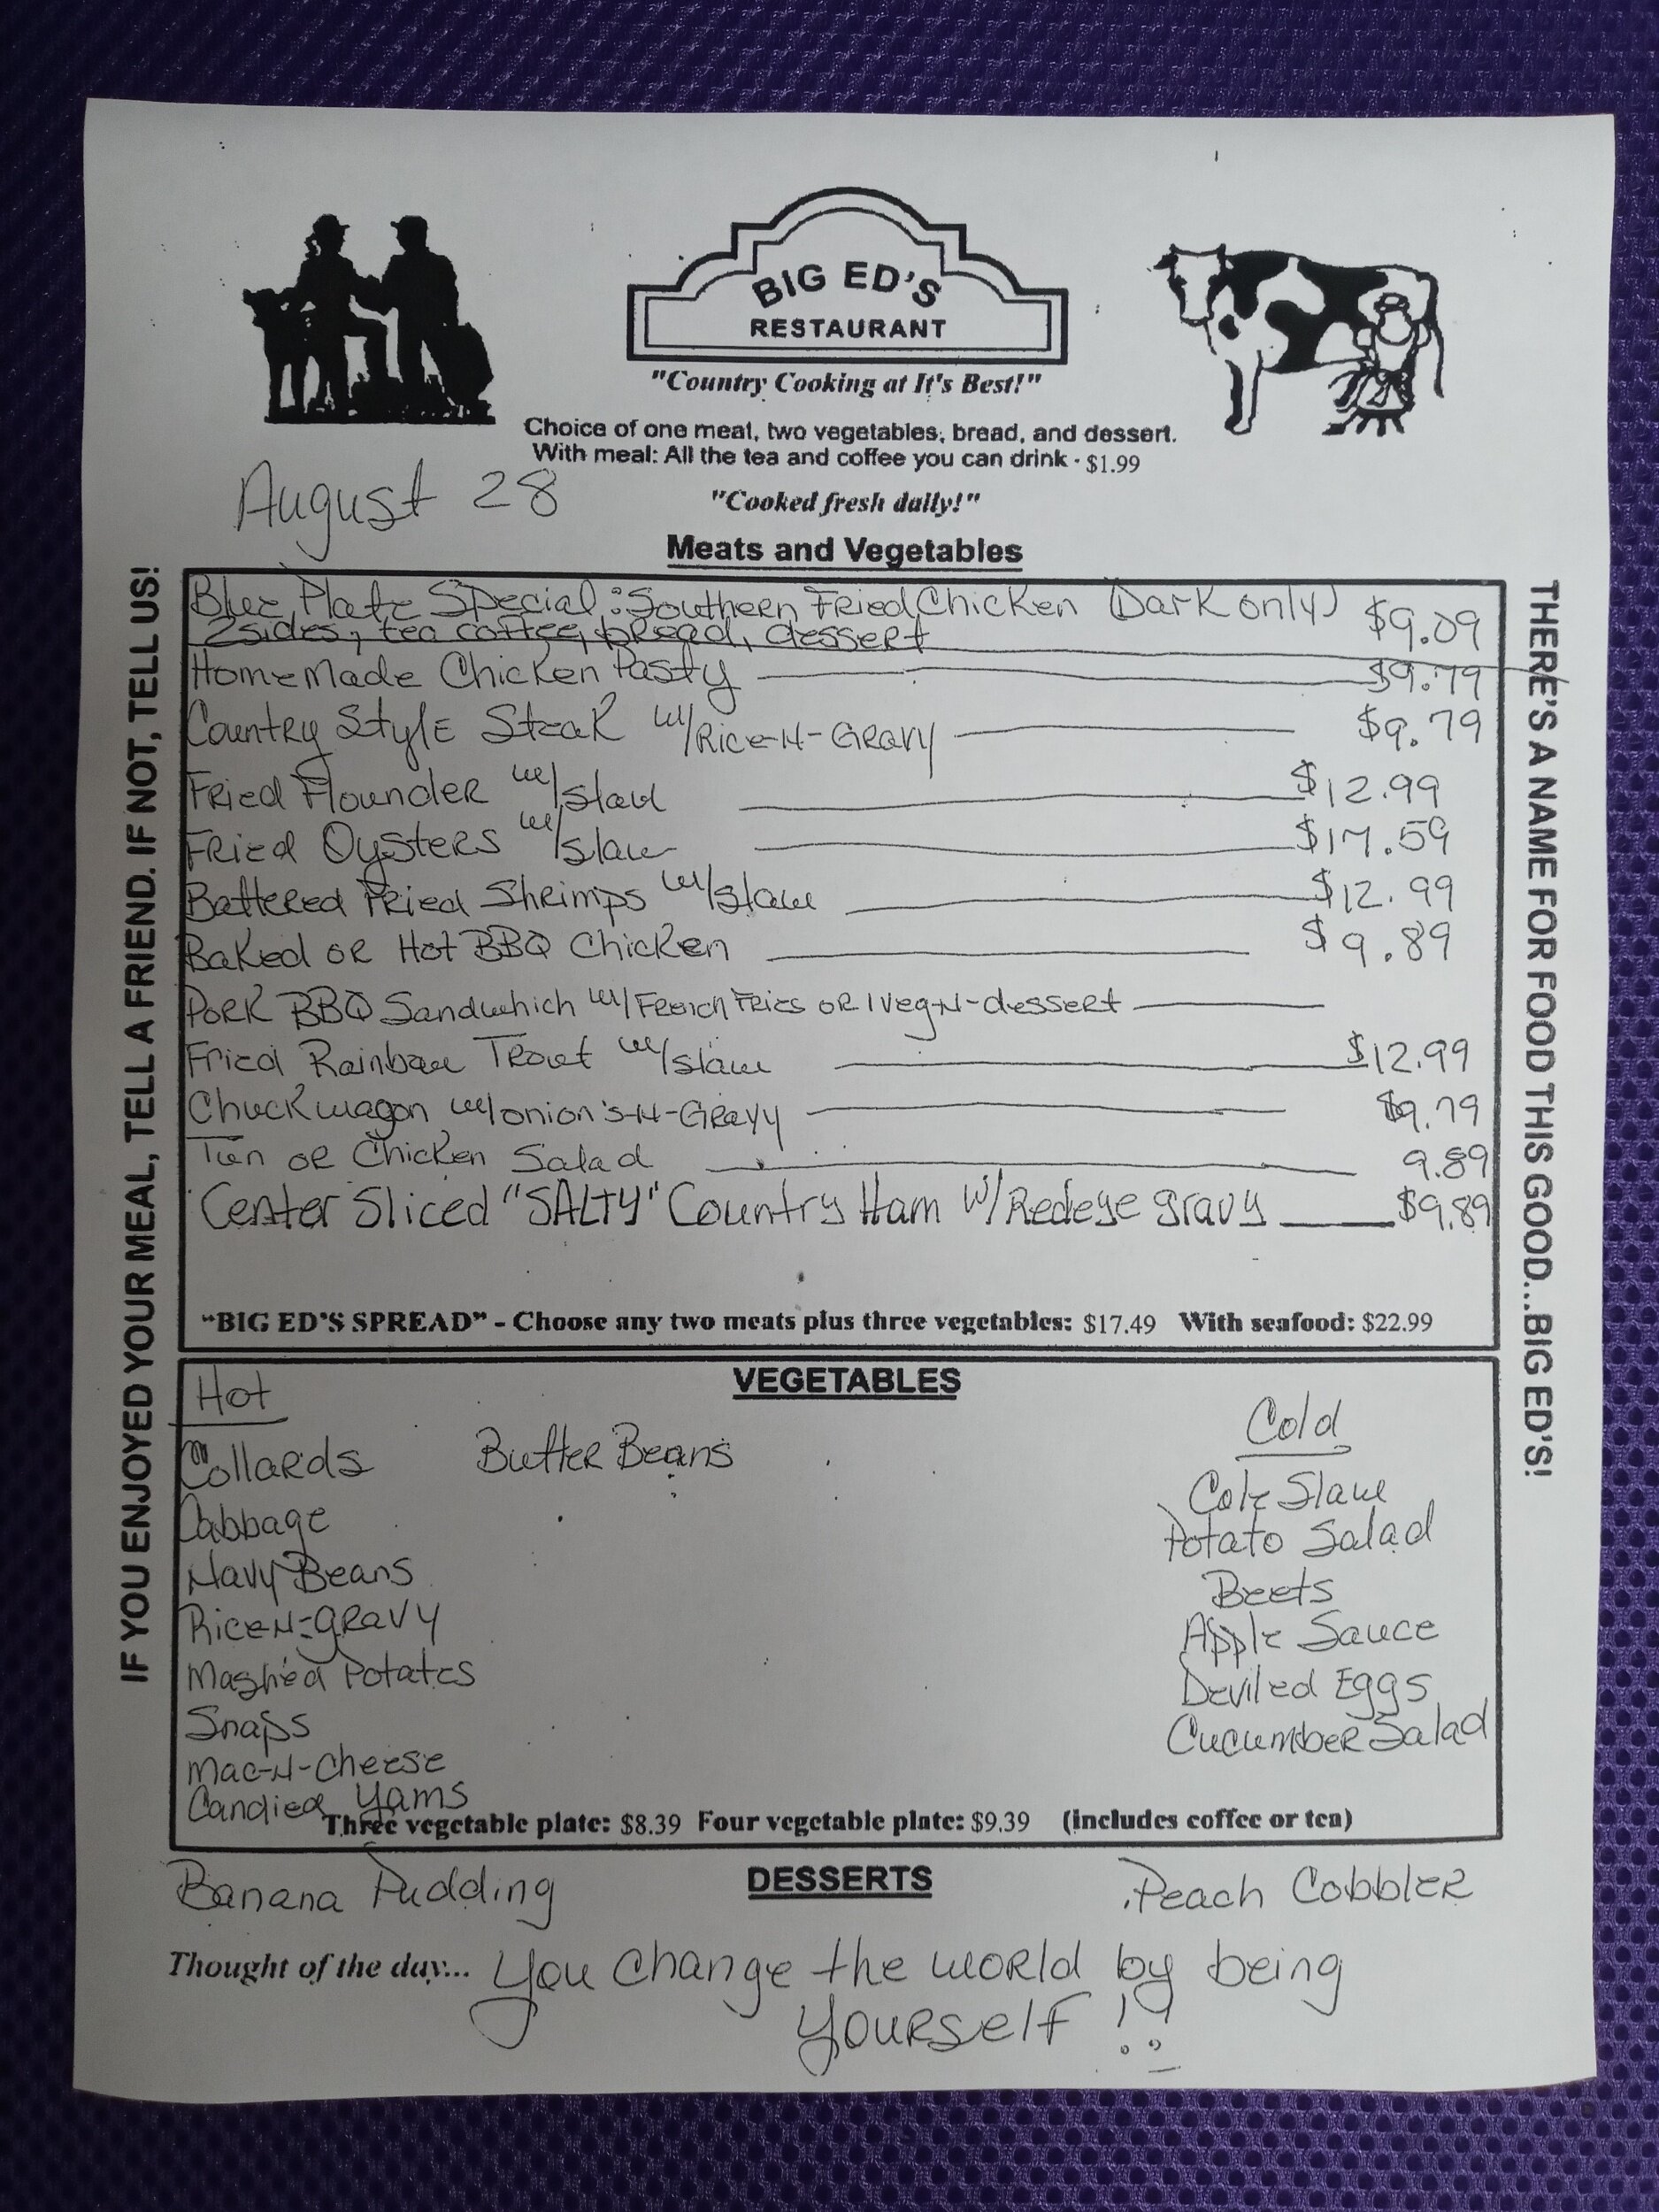 BIG ED'S
RESTAURANT
"Country Cooking at It's Best!"
Choice of one meat, two vegetables, bread, and dessert.
With meal: All the tea and coffee you can drink - $1.99
August 28
"Cooked fresh daily!"
Meats and Vegetables
IF YOU ENJOYED YOUR MEAL, TELL A FRIEND. IF NOT, TELL US!
Blue Plate Special: Southern Fried Chicken (Dark only) $9.09
2sides, tea coffee, bread, dessert
HomeMade Chicken Pasty $9.79
Country Style Steak w/Rice-N-Gravy $9.79
Fried Flounder w/slaw $12.99
Fried Oysters w/slaw $17.59
Battered Fried Shrimps w/slaw $12.99
Baked or Hot BBQ Chicken $9.89
Pork BBQ Sandwhich w/French Fries or 1 veg-N-dessert
Fried Rainbow Trout w/slaw $12.99
Chuckwagon w/onion's-N-Gravy $9.79
Tun or Chicken Salad 9.89
Center Sliced "SALTY" Country Ham w/Redeye gravy $9.89
"BIG ED'S SPREAD" - Choose any two meats plus three vegetables: $17.49 With seafood: $22.99
THERE'S A NAME FOR FOOD THIS GOOD...BIG ED'S!
VEGETABLES
Hot
Collards Butter Beans
Cabbage
Navy Beans
Rice-N-gravy
Mashed Potatos
Snaps
Mac-N-Cheese
Candied Yams
Cold
Cole Slaw
Potato Salad
Beets
Apple Sauce
Deviled Eggs
Cucumber Salad
Three vegetable plate: $8.39 Four vegetable plate: $9.39 (includes coffee or tea)
DESSERTS
Banana Pudding Peach Cobbler
Thought of the day... You change the world by being
yourself!!